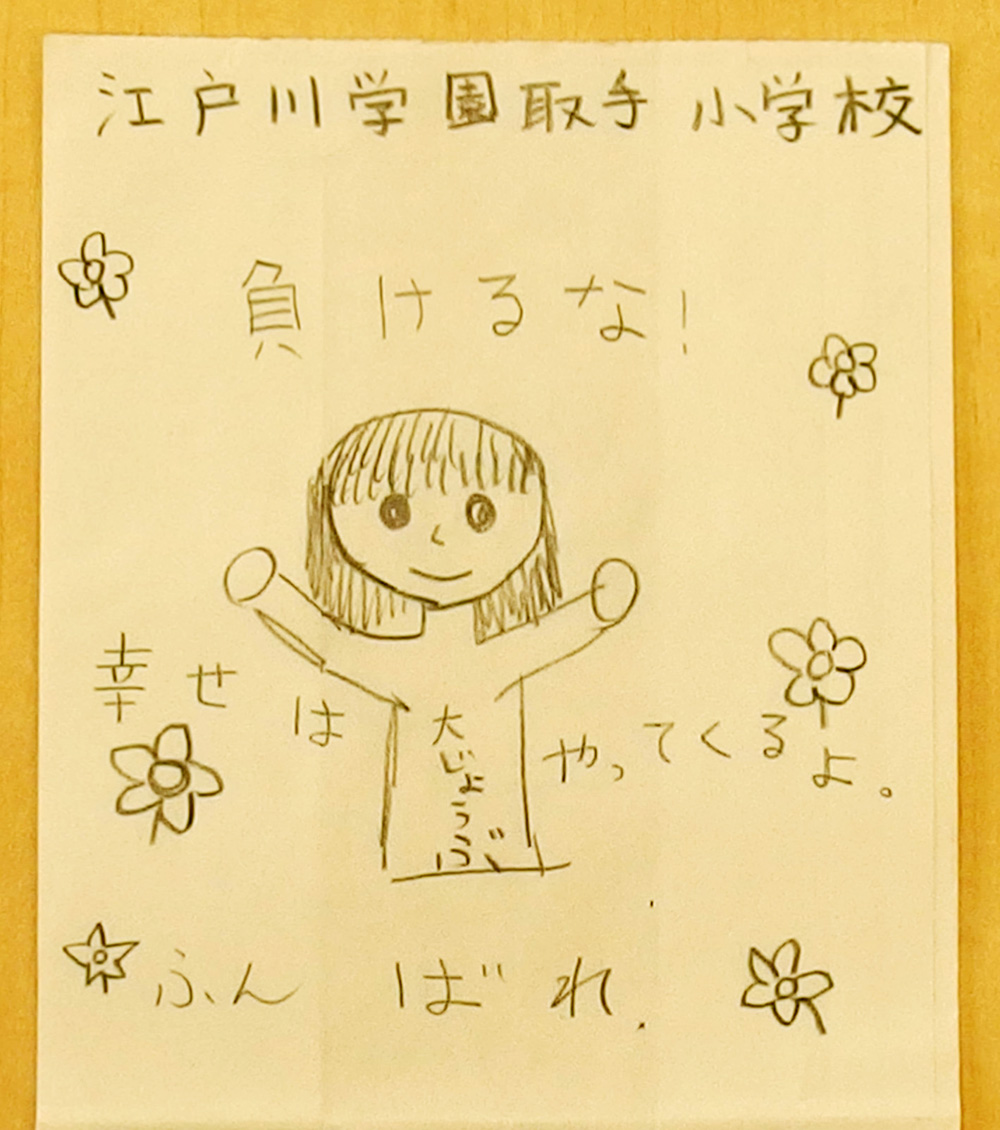 江戸川学園取手小学校
負けるな!
幸せはやってくるよ。
大じょうぶ
ふんばれ.